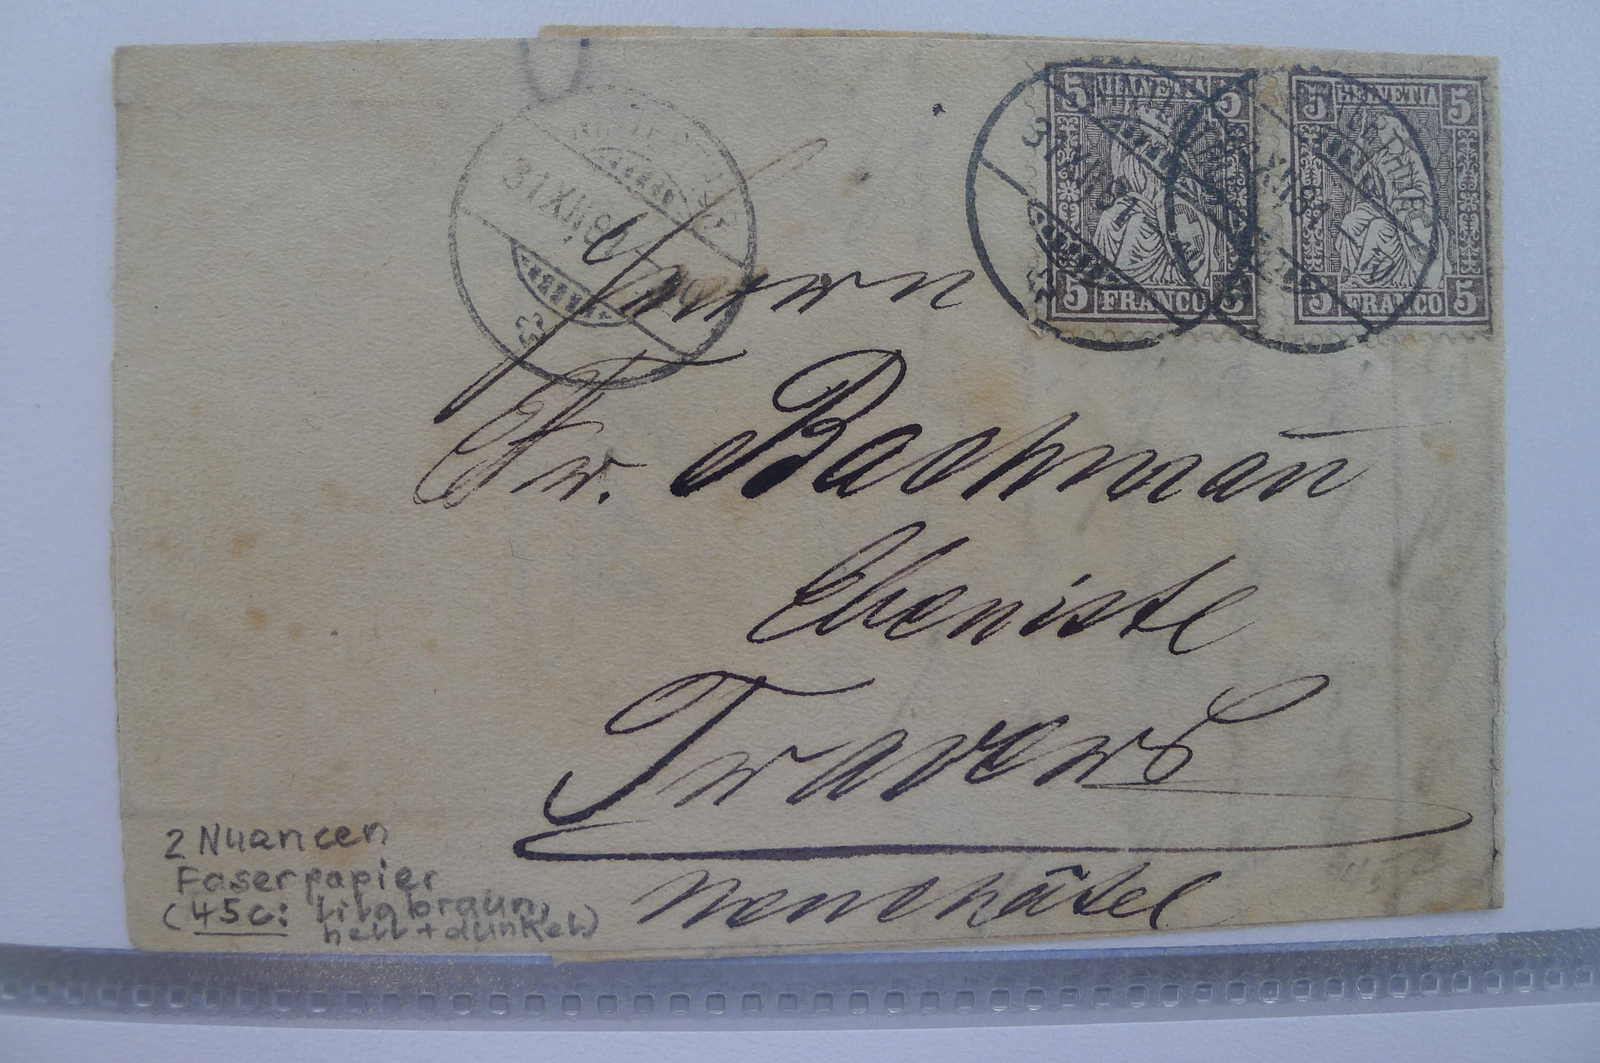 5 HELVETIA 5
5 FRANCO 5
5 HELVETIA 5
5 FRANCO 5
31 XII
Herrn
Fr. Bachman̄
Ebeniste
Travers
Neuchâtel
2 Nuancen
Faserpapier
(45c: lilabraun,
hell + dunkel)